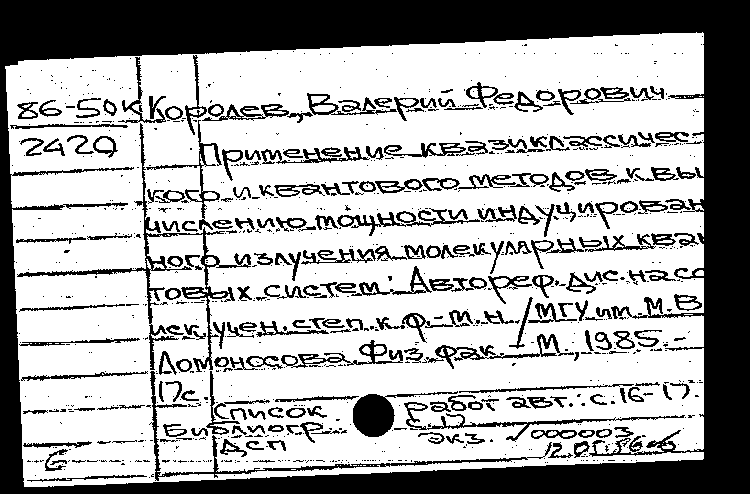 86-50к Королев, Валерий Федорович
2420 Применение квазиклассичес-
кого и квантового методов к вы
числению мощности индуцирован
ного излучения молекулярных кван
товых систем: Автореф. дис. на со
иск. учен. степ. к. ф.-м. н. / МГУ им. М.В
Ломоносова. Физ. фак. - М., 1985. -
17с.
Список работ авт.: с. 16-17.
Библиогр. с. 17
ДСП Экз. √000003
Б